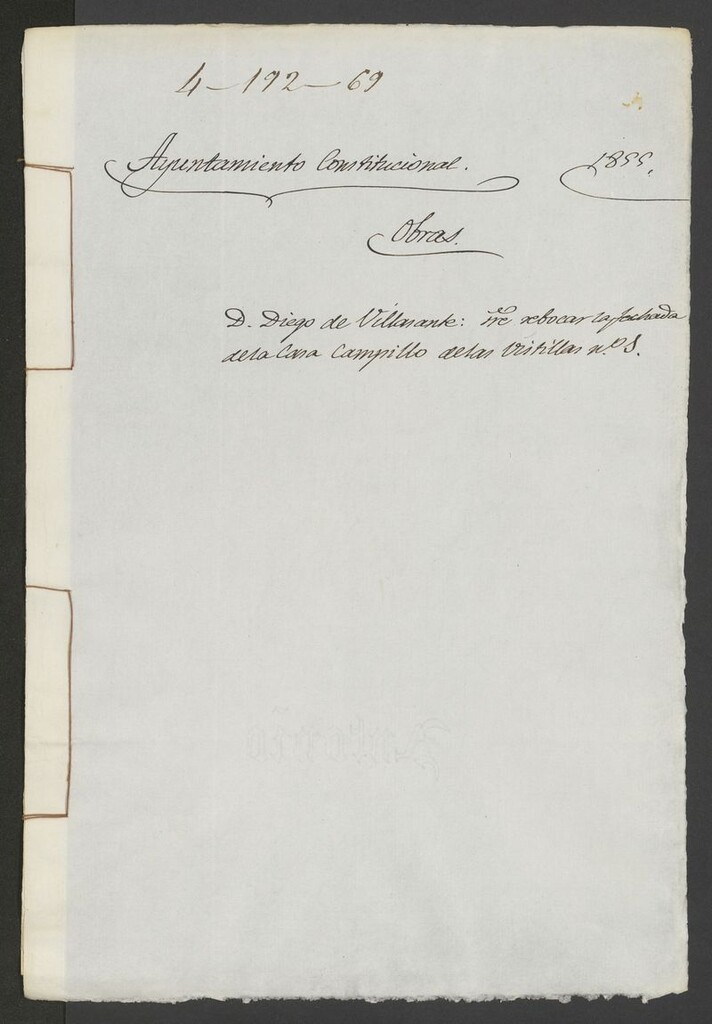 4-192-69
Ayuntamiento Constitucional. 1855.
Obras.
D. Diego de Villasante: sre rebocar la fachada
de la Casa Campillo de las Vistillas nº 8.